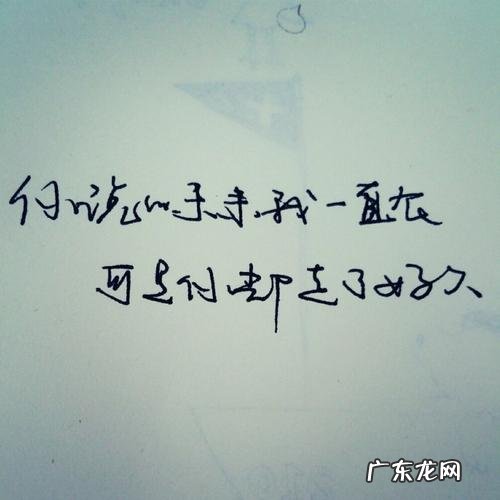 你说 我一直在
可是你却走了好久
广东龙网